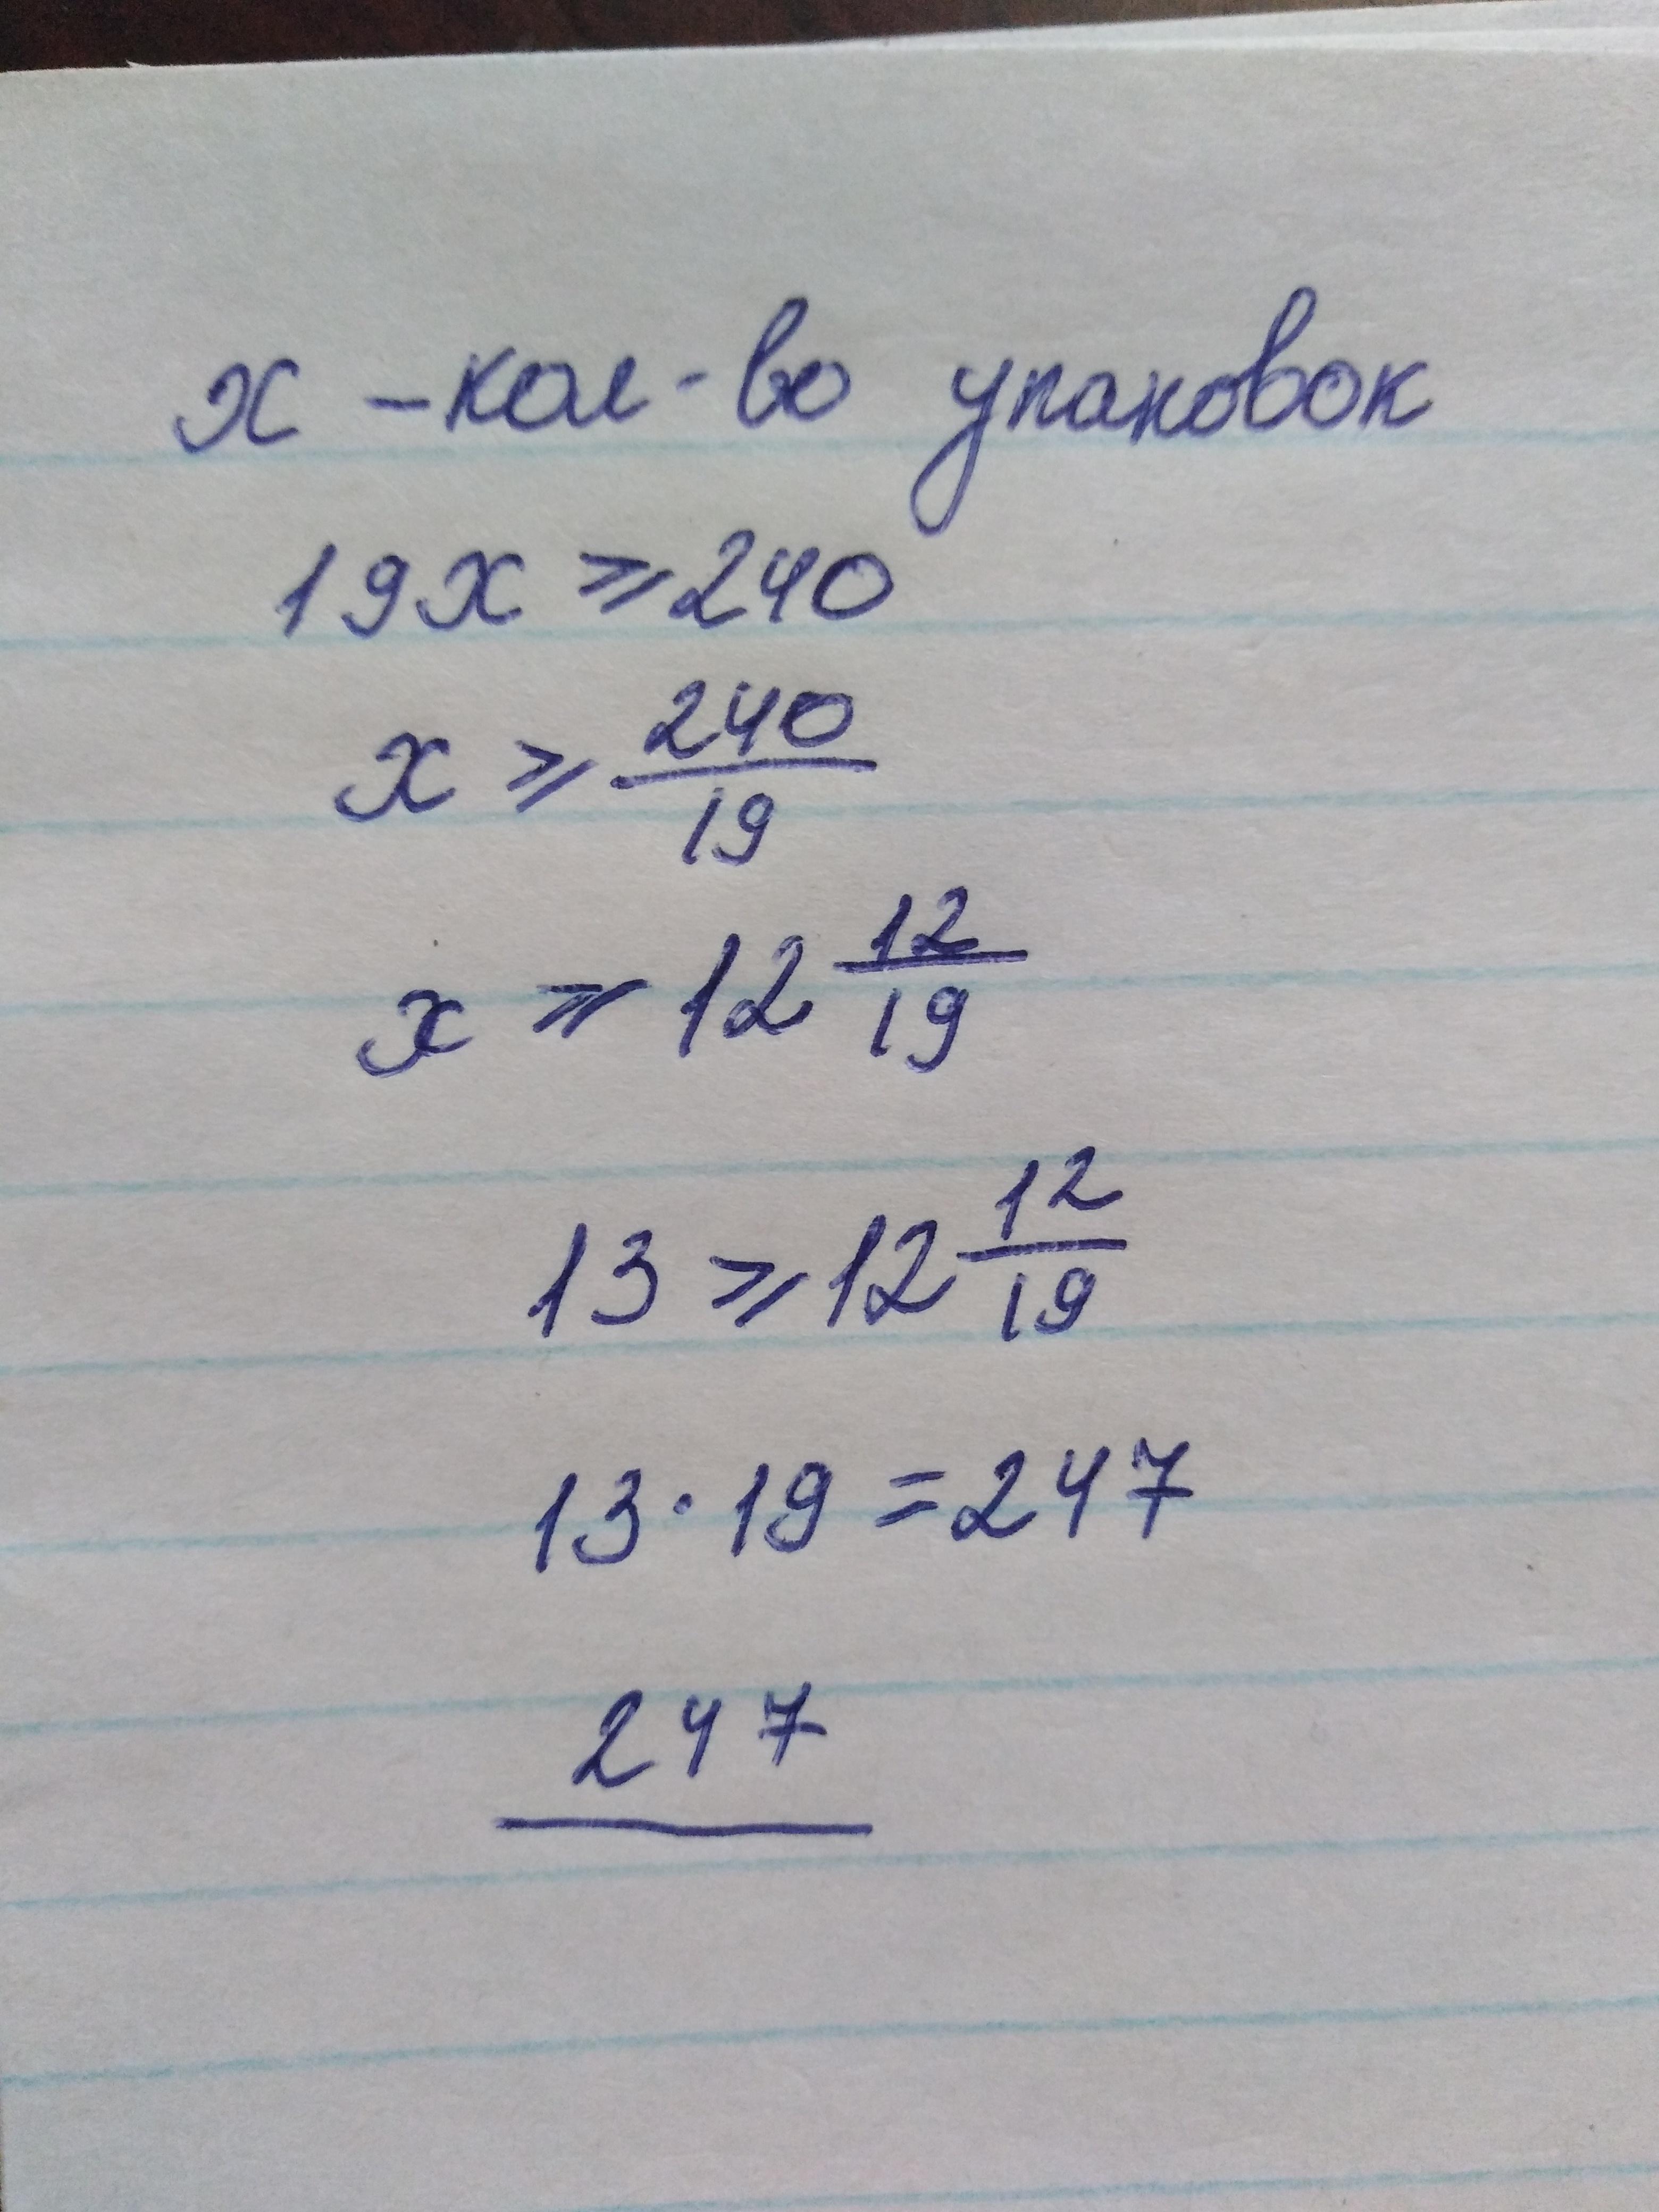 x - кол-во упаковок
19x ⩾ 240
x ⩾ 240/19
x ⩾ 12 12/19
13 ⩾ 12 12/19
13 · 19 = 247
247